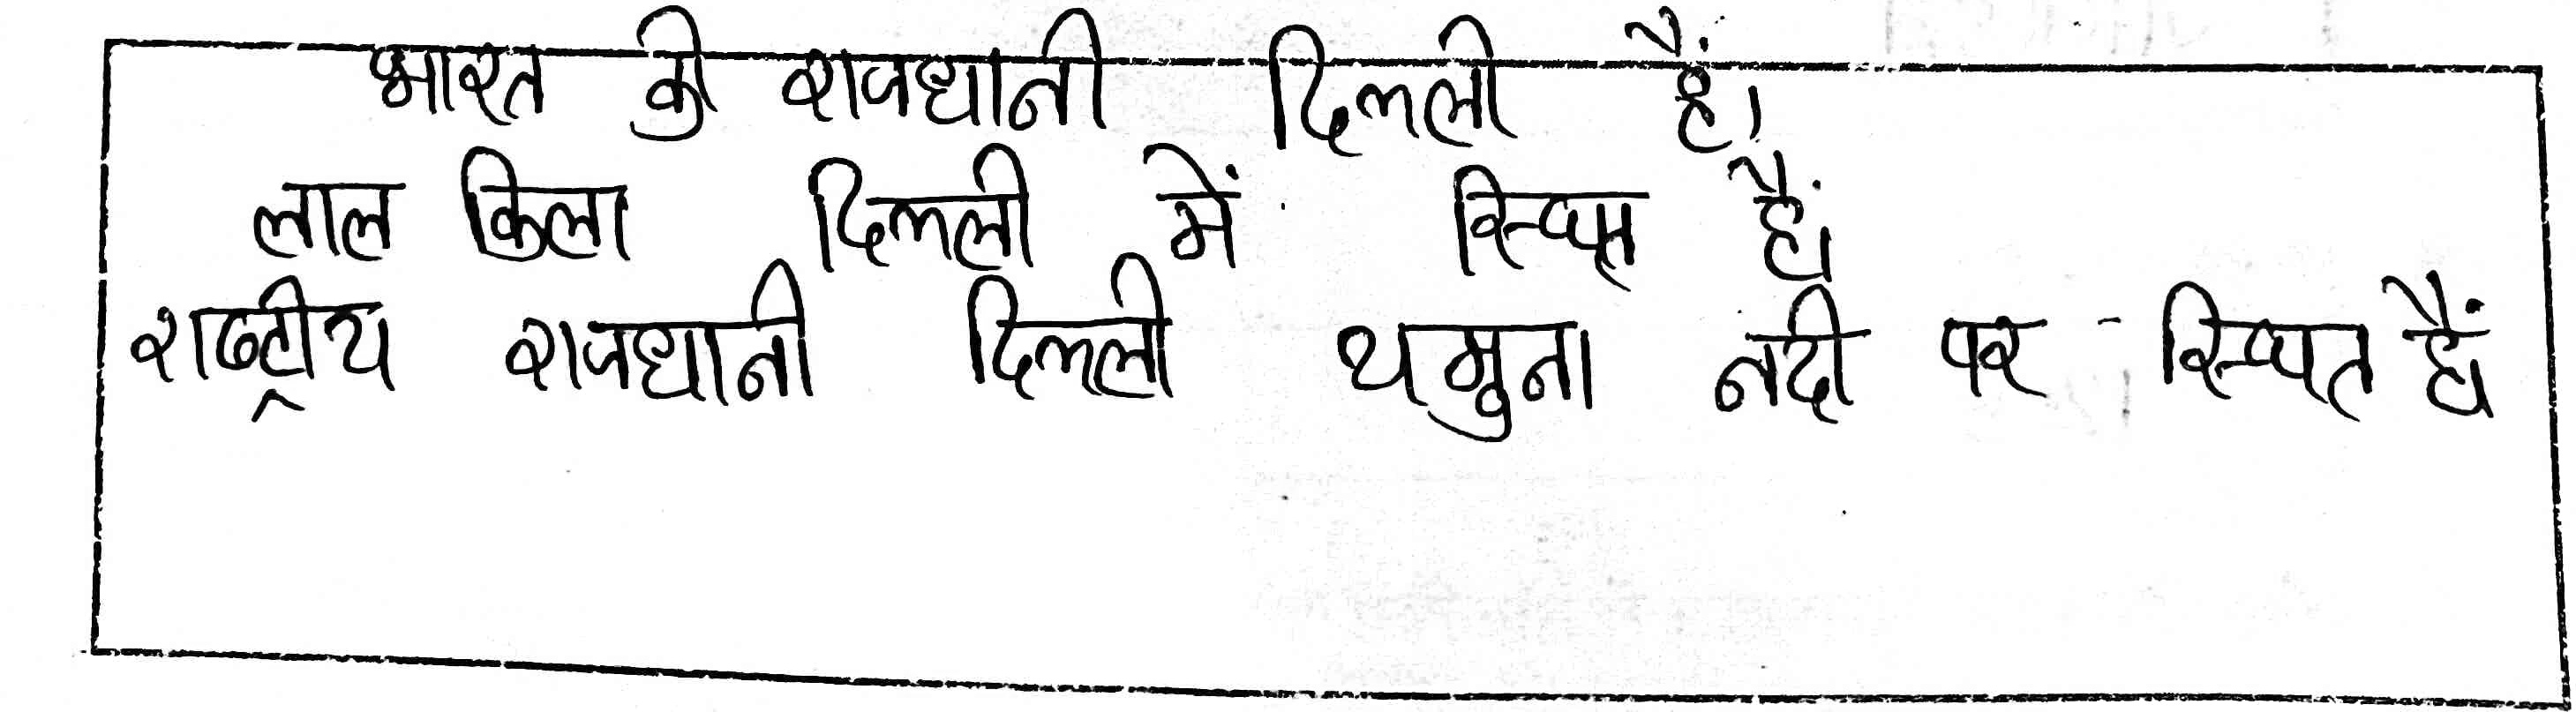 भारत की राजधानी दिल्ली हैं।
लाल किला दिल्ली में स्थित हैं।
राष्ट्रीय राजधानी दिल्ली यमुना नदी पर स्थित हैं।